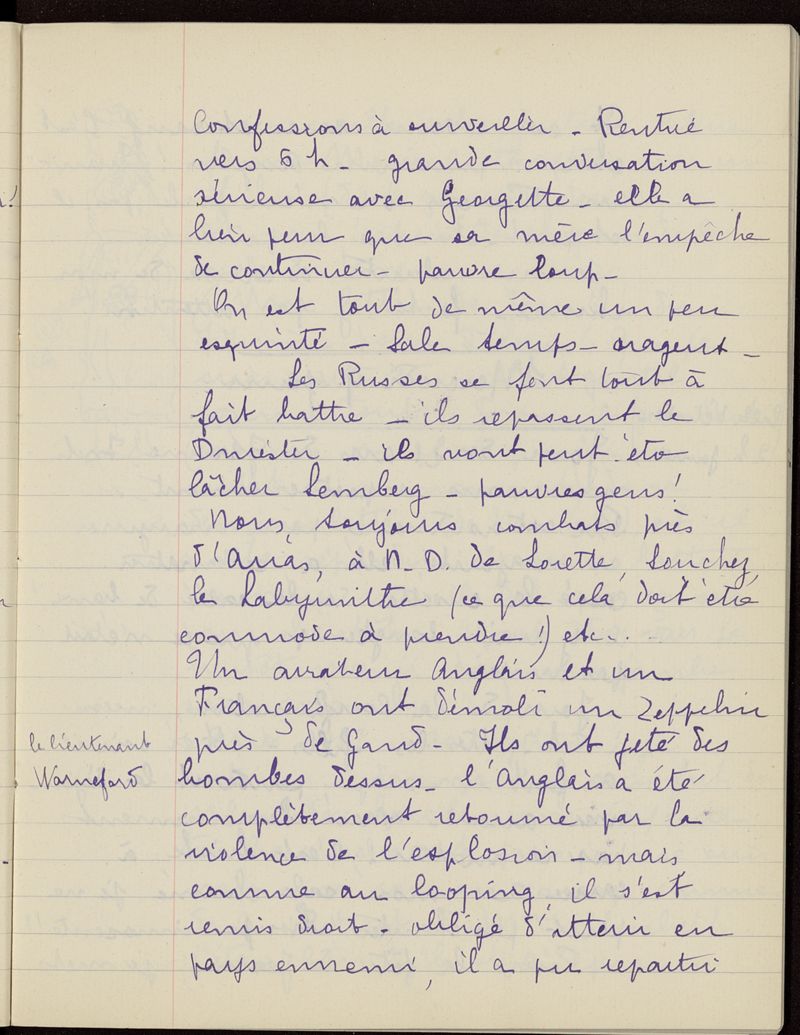 Confessions à surveiller - Rentré
vers 6 h - grande conversation
sérieuse avec Georgette - elle a
bien peur que sa mère l'empêche
de continuer - pauvre loup -
On est tout de même un peu
esquinté - Sale temps - orageux -
Les Russes se font tout à
fait battre - ils repassent le
Dniester - ils vont peut être
lâcher Lemberg - pauvres gens !
Nous, toujours combats près
d'Arras, à N. D. de Lorette, Souchez,
le Labyrinthe (ce que cela doit être
commode à prendre !) etc...
Un aviateur Anglais et un
Français ont démoli un Zeppelin
près de Gand - Ils ont jeté des
le lieutenant
Warneford
bombes dessus - l'Anglais a été
complètement retourné par la
violence de l'explosion - mais
comme au looping, il s'est
remis droit - obligé d'atterir en
pays ennemi, il a pu repartir